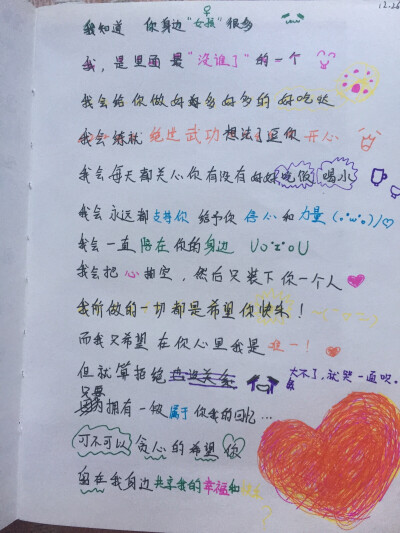 12.26
我知道 你身边“女孩”很多
我,是里面最“没谁了”的一个
我会给你做好好多好多的好吃哒
我会练就绝世武功想法了逗你开心
我会每天都关心你有没有好好吃饭 喝水
我会永远都支持你 给予你信心和力量(•ˇ‸ˇ•)/♡
我会一直陪在你的身边 U•ェ•U
我会把心掏空,然后只装下你一个人
我所做的一切都是希望你快乐!
而我只希望在你心里我是唯一!
但就算拒绝也没关系 大不了,就哭一直呗。
只要
拥有一级属于你我的回忆…
可不可以 贪心的希望 你
留在我身边共享我的幸福和